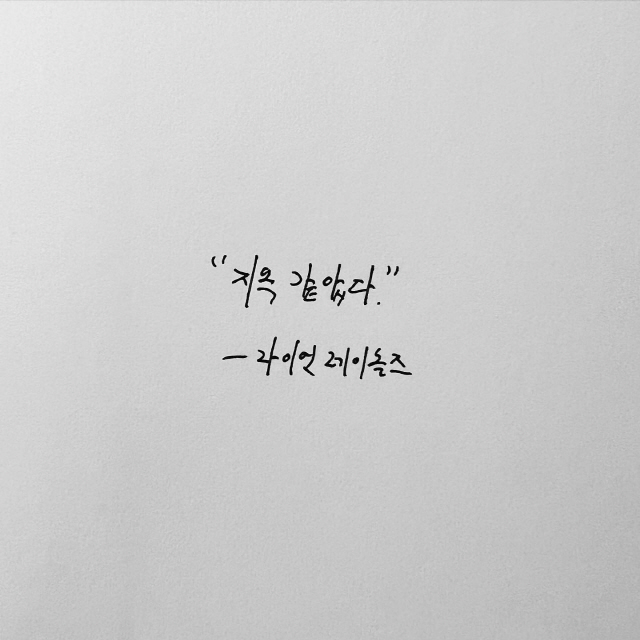 “지옥 같았다.”
— 라이언 레이놀즈